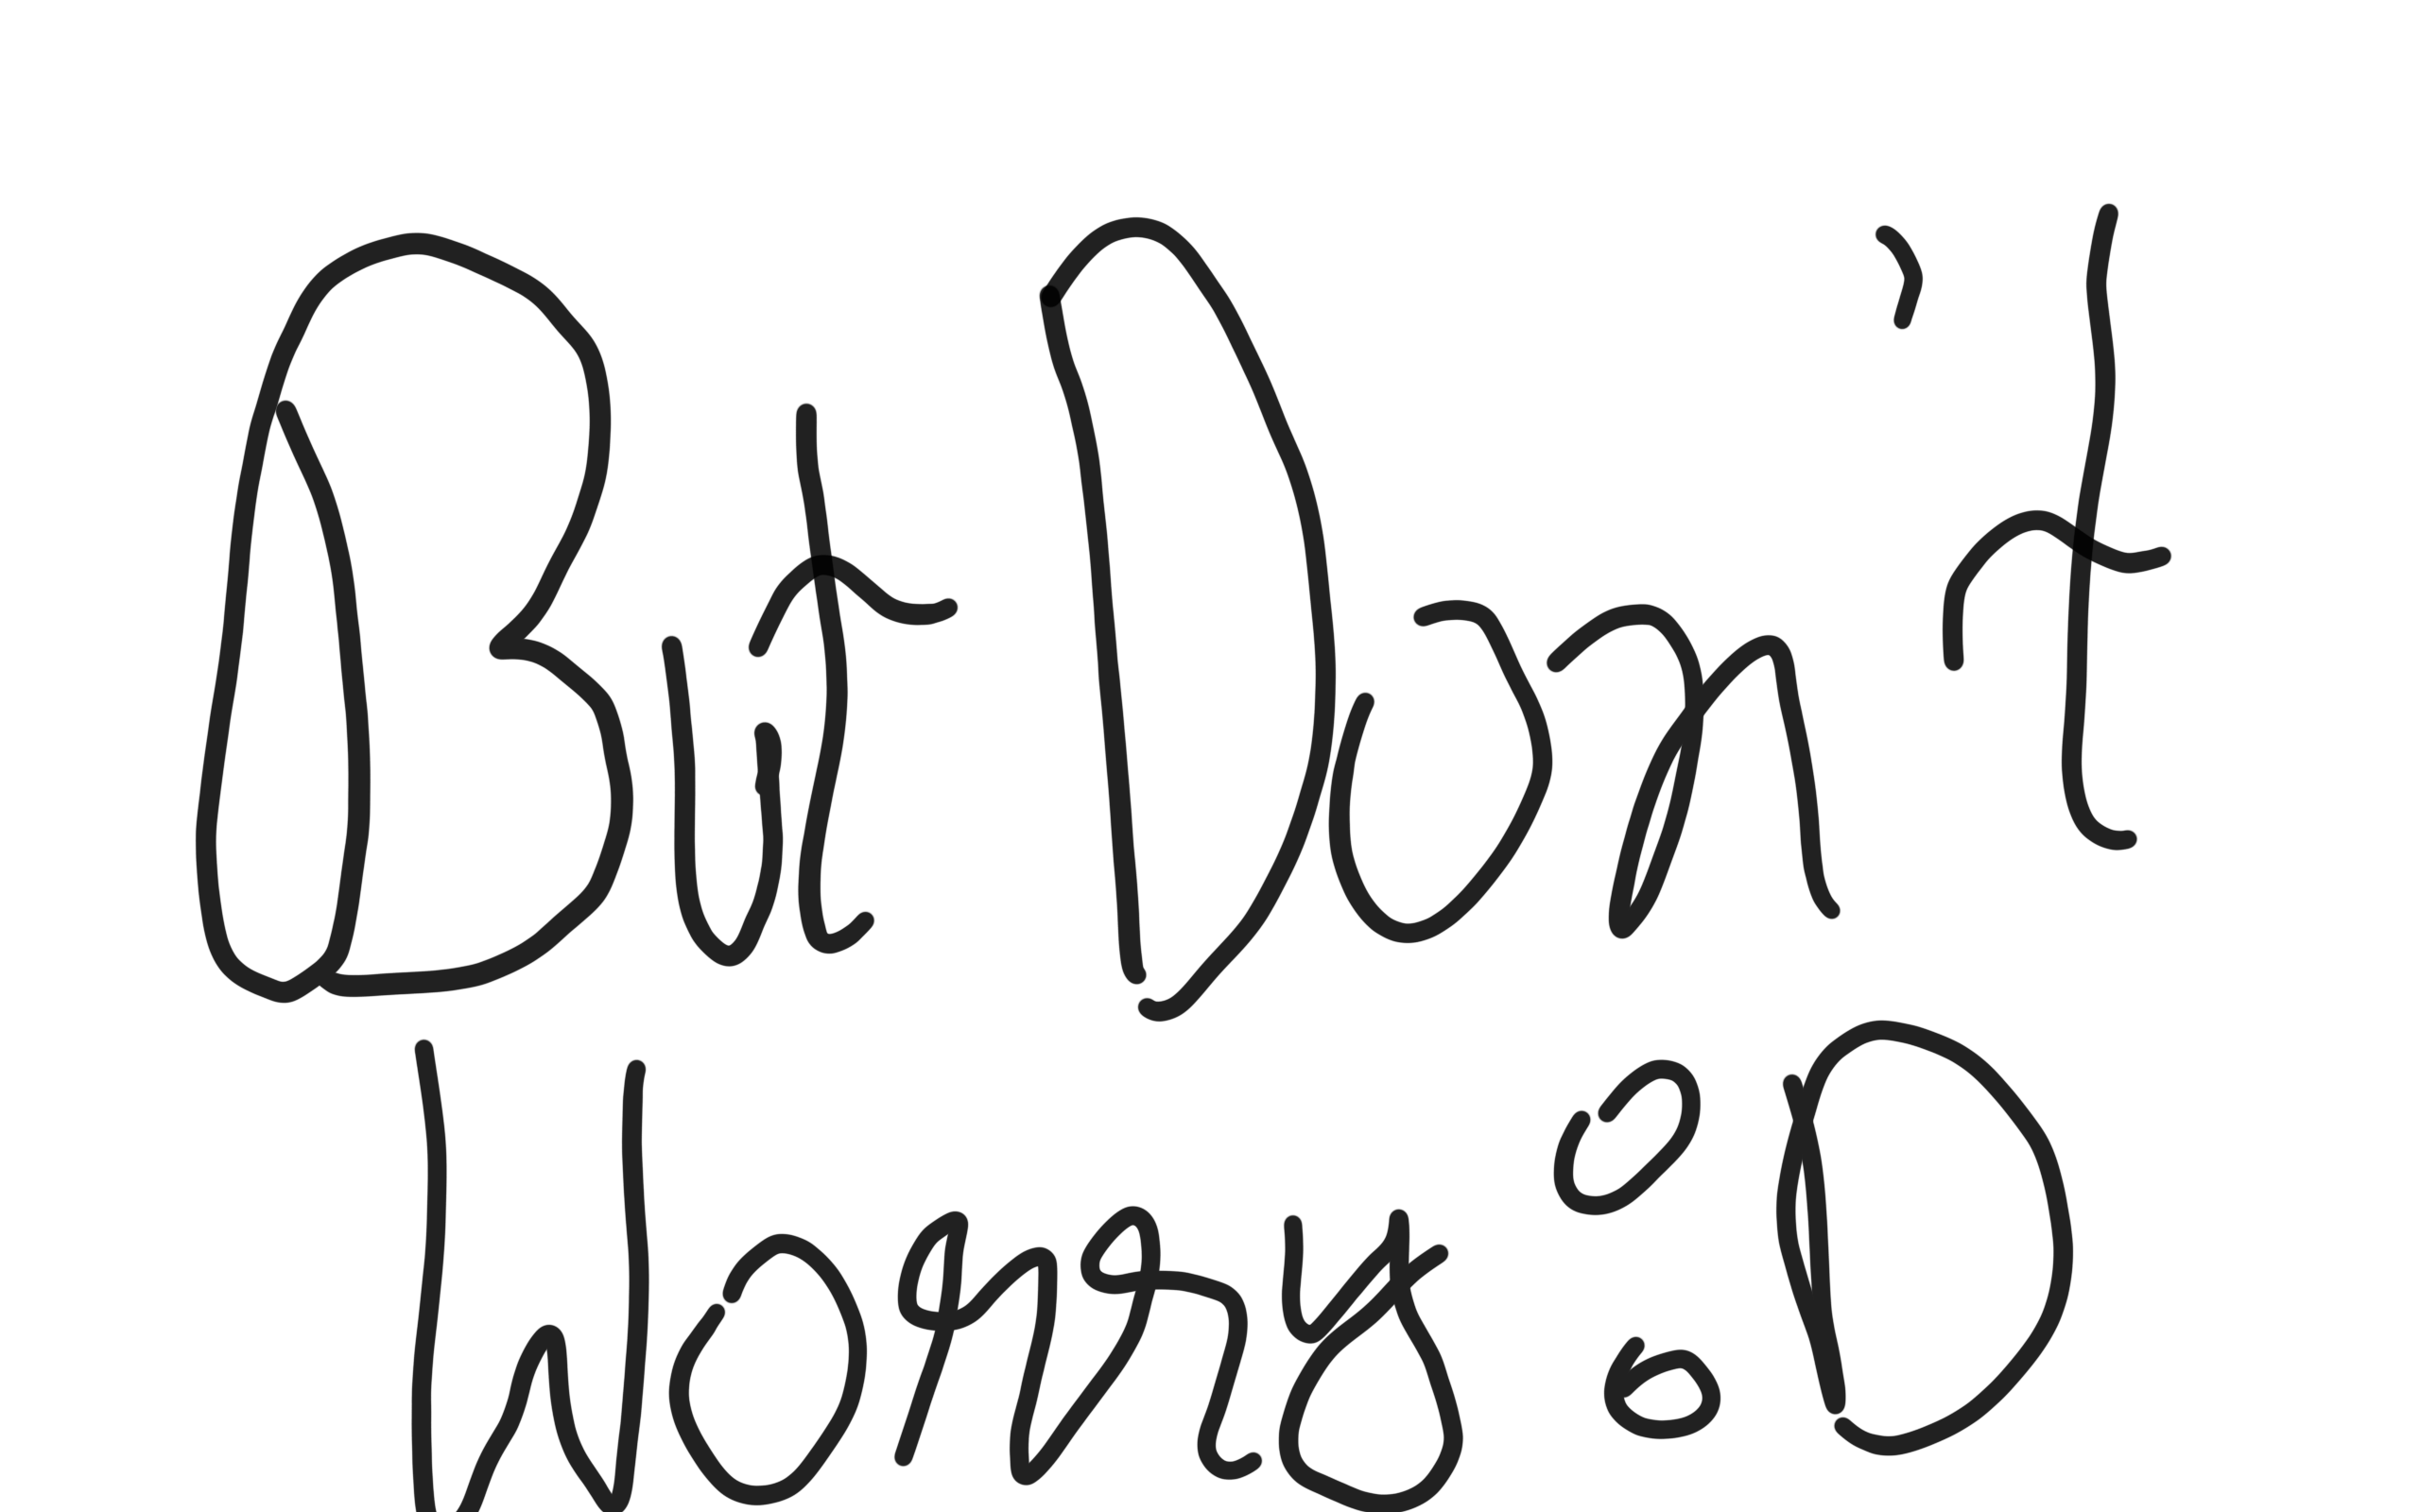 But Don't
Worry :D